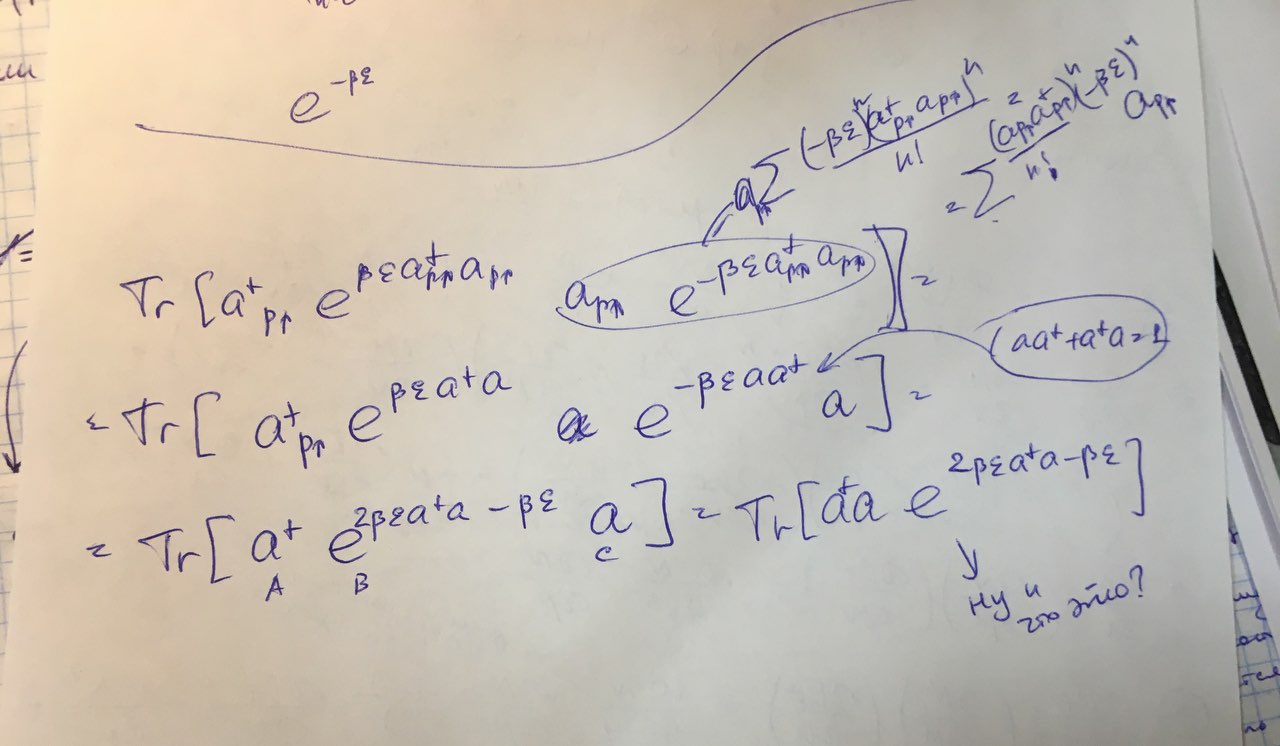 e^{-βε}
a_{p↑} Σ (-βε)^n (a^+_{p↑} a_{p↑})^n / n! = Σ (a_{p↑} a^+_{p↑})^n (-βε)^n / n! a_{p↑}
Tr [a^+_{p↑} e^{βε a^+_{p↑} a_{p↑}} a_{p↑} e^{-βε a^+_{p↑} a_{p↑}}] =
(aa^+ + a^+a = 1)
= Tr [a^+_{p↑} e^{βε a^+a} e^{-βε aa^+} a] =
= Tr [a^+ e^{2βε a^+a - βε} a] = Tr [a^+a e^{2βε a^+a - βε}]
A B C
ну и
что это?